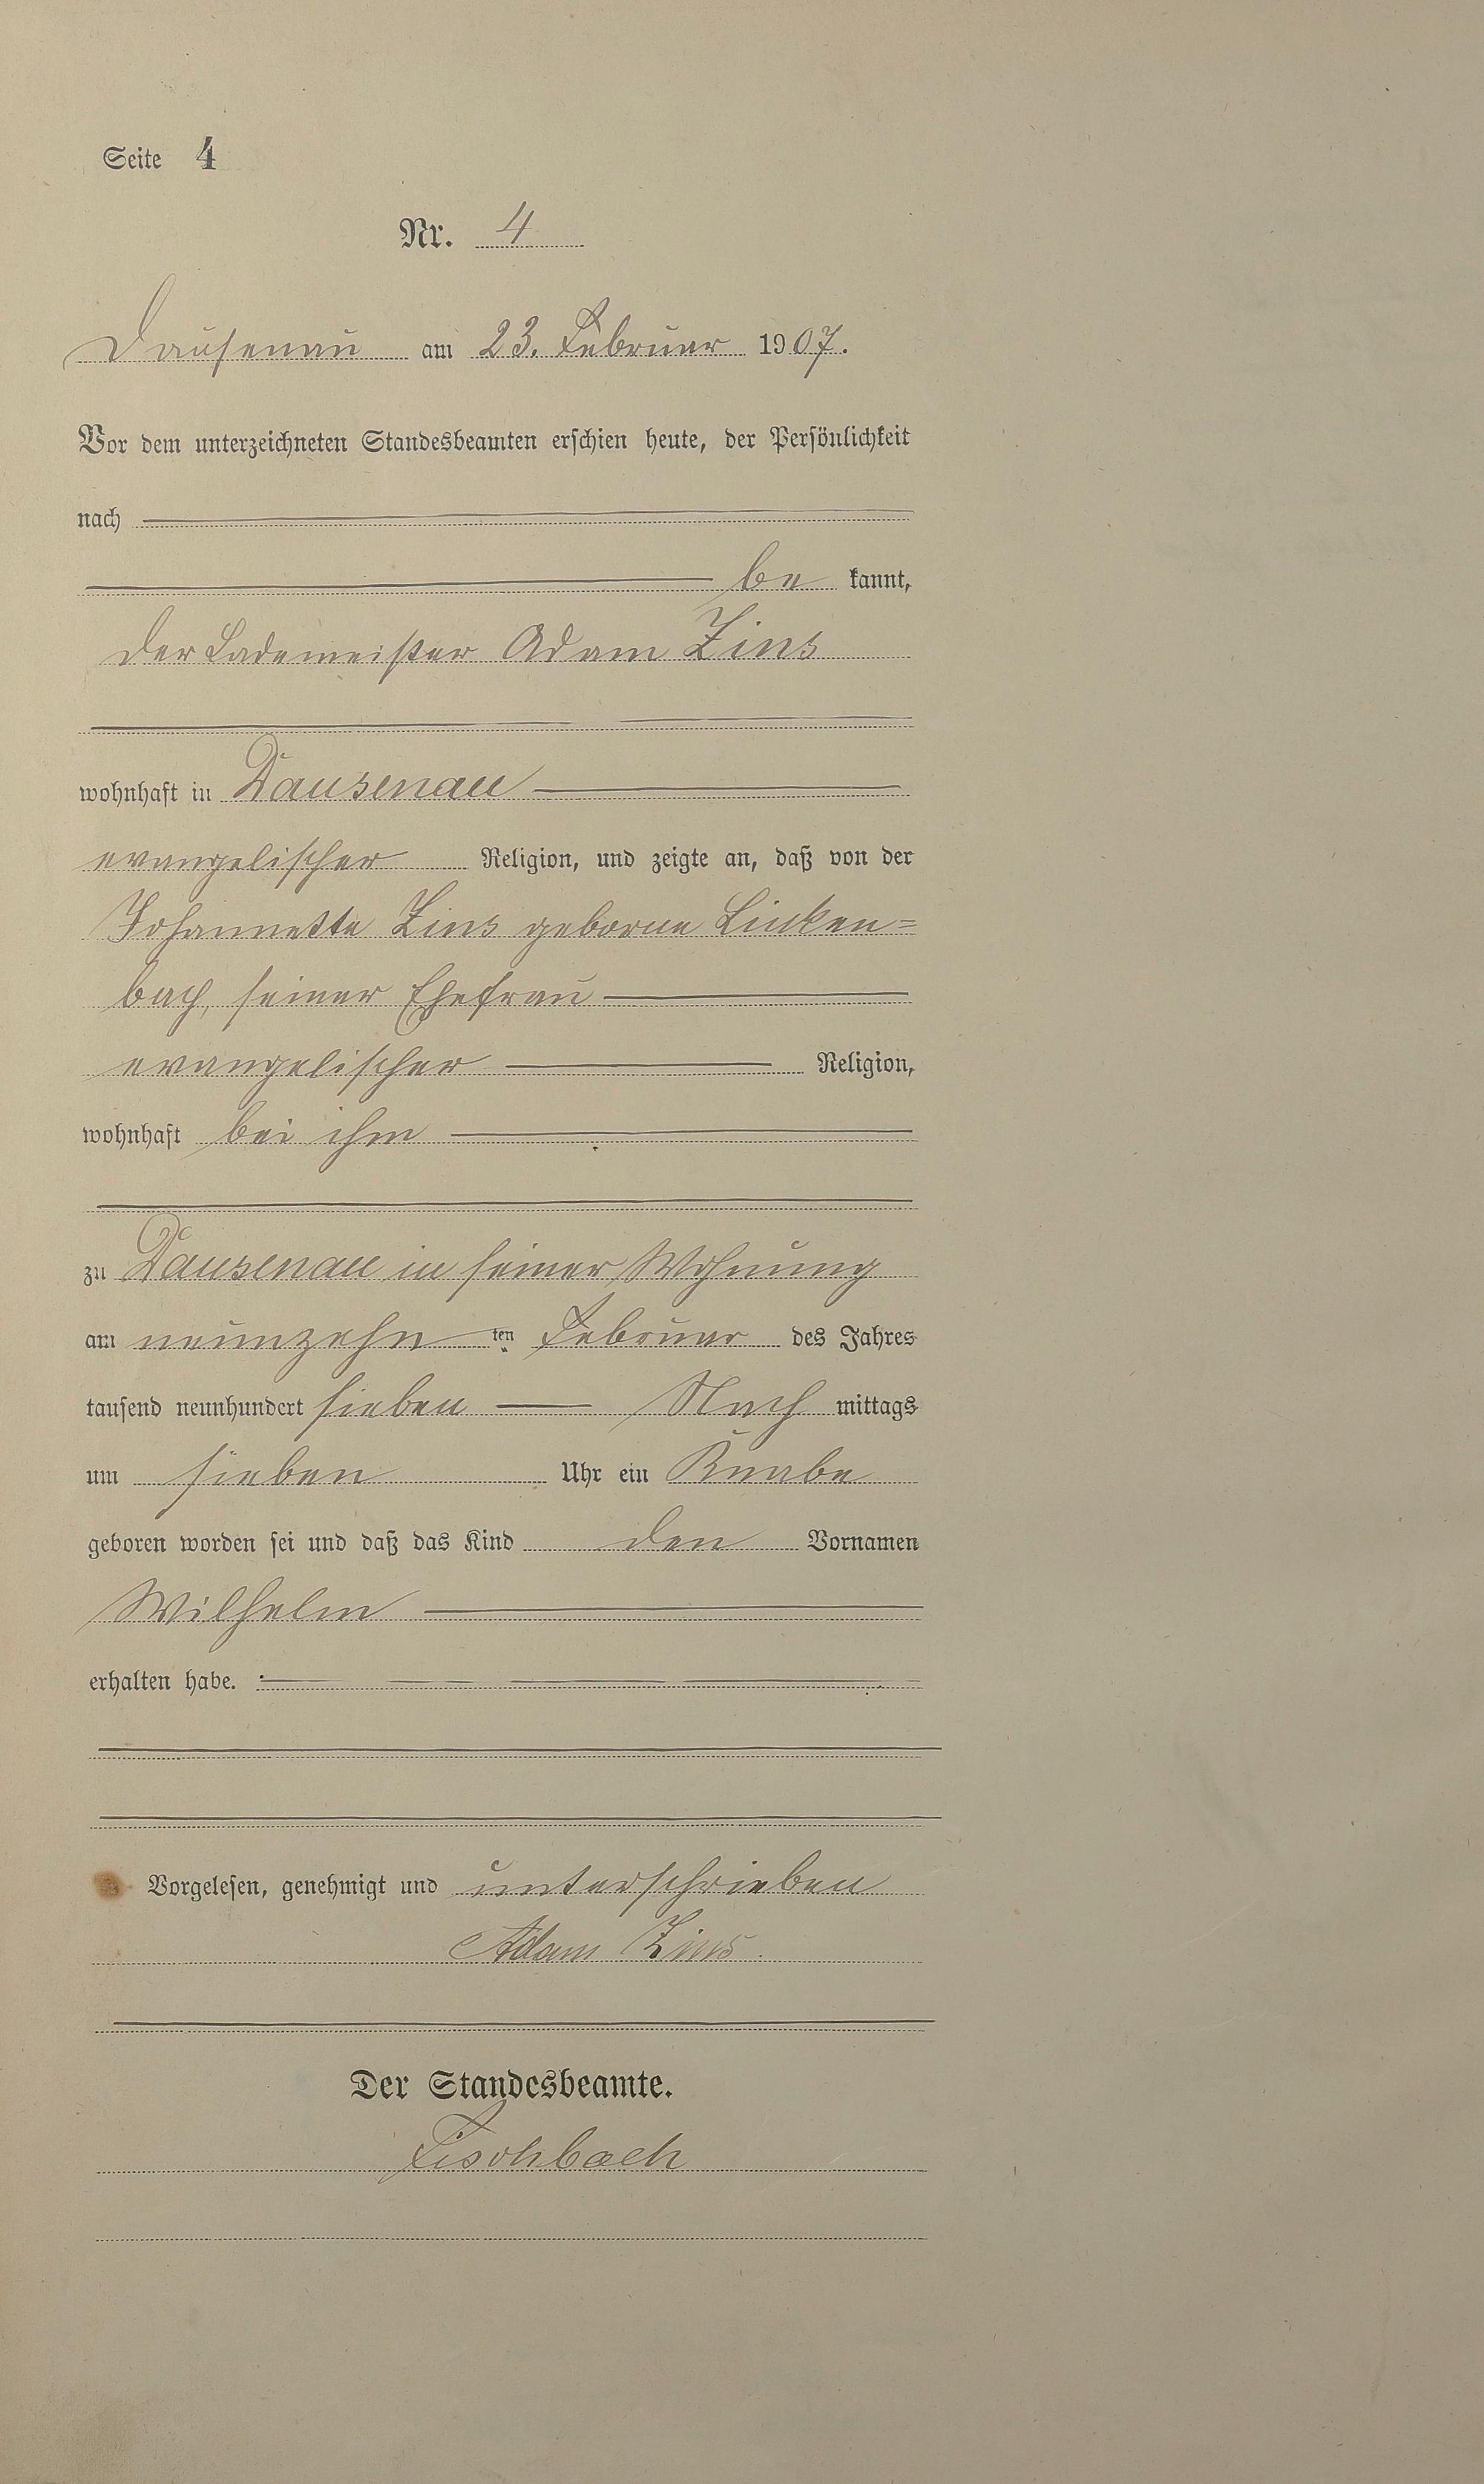 Seite 4
Nr. 4
Dausenau am 23. Februar 1907.
Vor dem unterzeichneten Standesbeamten erschien heute, der Persönlichkeit
nach
be kannt,
der Lademeister Adam Zins
wohnhaft in Dausenau
evangelischer Religion, und zeigte an, daß von der
Johannette Zins geborne Linken=
bach, seiner Ehefrau
evangelischer Religion,
wohnhaft bei ihm
zu Dausenau in seiner Wohnung
am neunzehn ten Februar des Jahres
tausend neunhundert sieben Nach mittags
um sieben Uhr ein Knabe
geboren worden sei und daß das Kind den Vornamen
Wilhelm
erhalten habe.
Vorgelesen, genehmigt und unterschrieben
Adam Zins.
Der Standesbeamte.
Fischbach